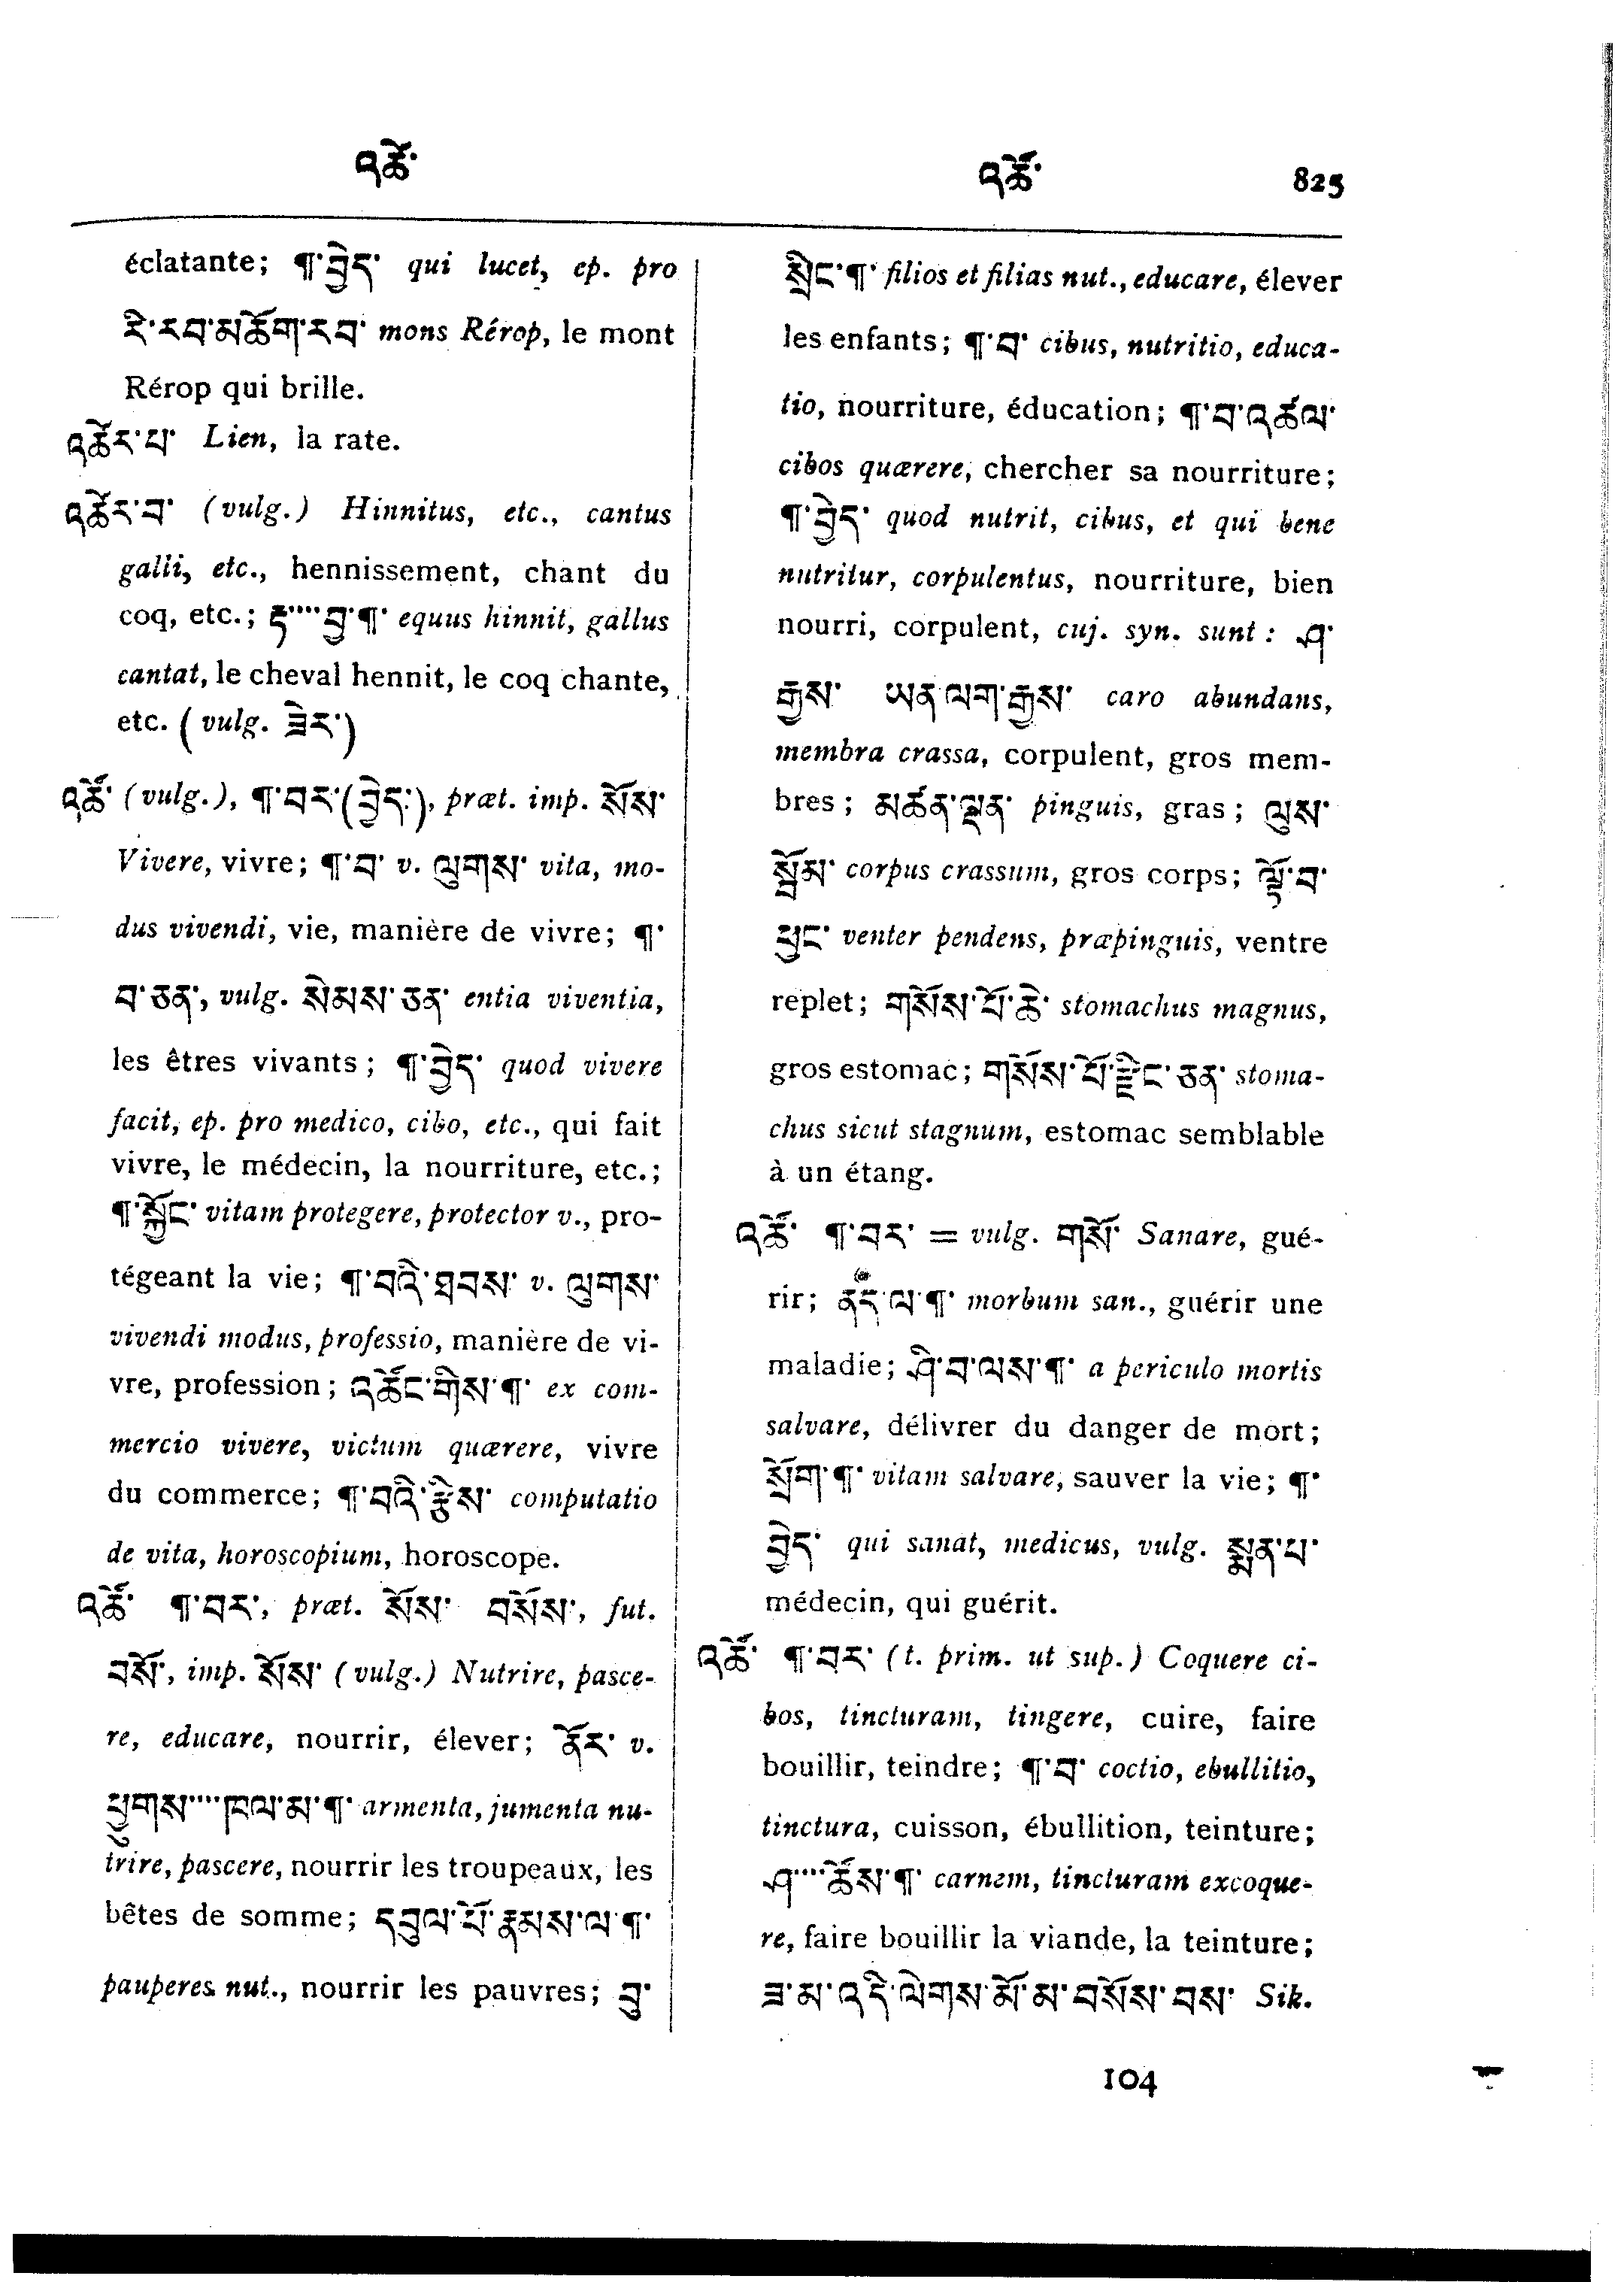 འཚེ་
འཚོ་ 825
éclatante; ¶་བྱེད་ qui lucet, ep. pro
རི་རབ་མཆོག་རབ་ mons Rérop, le mont
Rérop qui brille.
འཚེར་པ་ Lien, la rate.
འཚེར་བ་ (vulg.) Hinnitus, etc., cantus
galli, etc., hennissement, chant du
coq, etc.; རྟ་་་་བྱ་¶་ equus hinnit, gallus
cantat, le cheval hennit, le coq chante,
etc. (vulg. ཟེར་)
འཚོ་ (vulg.), ¶་བར་(བྱེད་), præt. imp. སོས་
Vivere, vivre; ¶་བ་ v. ལུགས་ vita, mo-
dus vivendi, vie, manière de vivre; ¶་
བ་ཅན་, vulg. སེམས་ཅན་ entia viventia,
les êtres vivants; ¶་བྱེད་ quod vivere
facit, ep. pro medico, cibo, etc., qui fait
vivre, le médecin, la nourriture, etc.;
¶་སྐྱོང་ vitam protegere, protector v., pro-
tégeant la vie; ¶་བའི་ཐབས་ v. ལུགས་
vivendi modus, professio, manière de vi-
vre, profession; འཚོང་གིས་¶་ ex com-
mercio vivere, victum quærere, vivre
du commerce; ¶་བའི་རྩིས་ computatio
de vita, horoscopium, horoscope.
འཚོ་ ¶་བར་, præt. སོས་ བསོས་, fut.
བསོ་, imp. སོས་ (vulg.) Nutrire, pasce-
re, educare, nourrir, élever; ནོར་ v.
ཕྱུགས་་་་ཁལ་མ་¶་ armenta, jumenta nu-
trire, pascere, nourrir les troupeaux, les
bêtes de somme; དབུལ་པོ་རྣམས་ལ་¶་
pauperes nut., nourrir les pauvres; བུ་
སྲིང་¶་ filios et filias nut., educare, élever
les enfants; ¶་བ་ cibus, nutritio, educa-
tio, nourriture, éducation; ¶་བ་འཚལ་
cibos quærere, chercher sa nourriture;
¶་བྱེད་ quod nutrit, cibus, et qui bene
nutritur, corpulentus, nourriture, bien
nourri, corpulent, cuj. syn. sunt: ཤ་
རྒྱས་ ཡན་ལག་རྒྱས་ caro abundans,
membra crassa, corpulent, gros mem-
bres; མཚན་ལྡན་ pinguis, gras; ལུས་
སྦོམ་ corpus crassum, gros corps; ལྟོ་བ་
ཕྱང་ venter pendens, præpinguis, ventre
replet; གསོས་པོ་ཆེ་ stomachus magnus,
gros estomac; གསོས་པོ་རྫིང་ཅན་ stoma-
chus sicut stagnum, estomac semblable
à un étang.
འཚོ་ ¶་བར་ = vulg. གསོ་ Sanare, gué-
rir; ནད་ལ་¶་ morbum san., guérir une
maladie; ཤི་བ་ལས་¶་ a periculo mortis
salvare, délivrer du danger de mort;
སྲོག་¶་ vitam salvare, sauver la vie; ¶་
བྱེད་ qui sanat, medicus, vulg. སྨན་པ་
médecin, qui guérit.
འཚོ་ ¶་བར་ (t. prim. ut sup.) Coquere ci-
bos, tincturam, tingere, cuire, faire
bouillir, teindre; ¶་བ་ coctio, ebullitio,
tinctura, cuisson, ébullition, teinture;
ཤ་་་་ཚོས་¶་ carnem, tincturam excoque-
re, faire bouillir la viande, la teinture;
ཟ་མ་འདི་ལེགས་མོ་མ་བསོས་བས་ Sik.
104